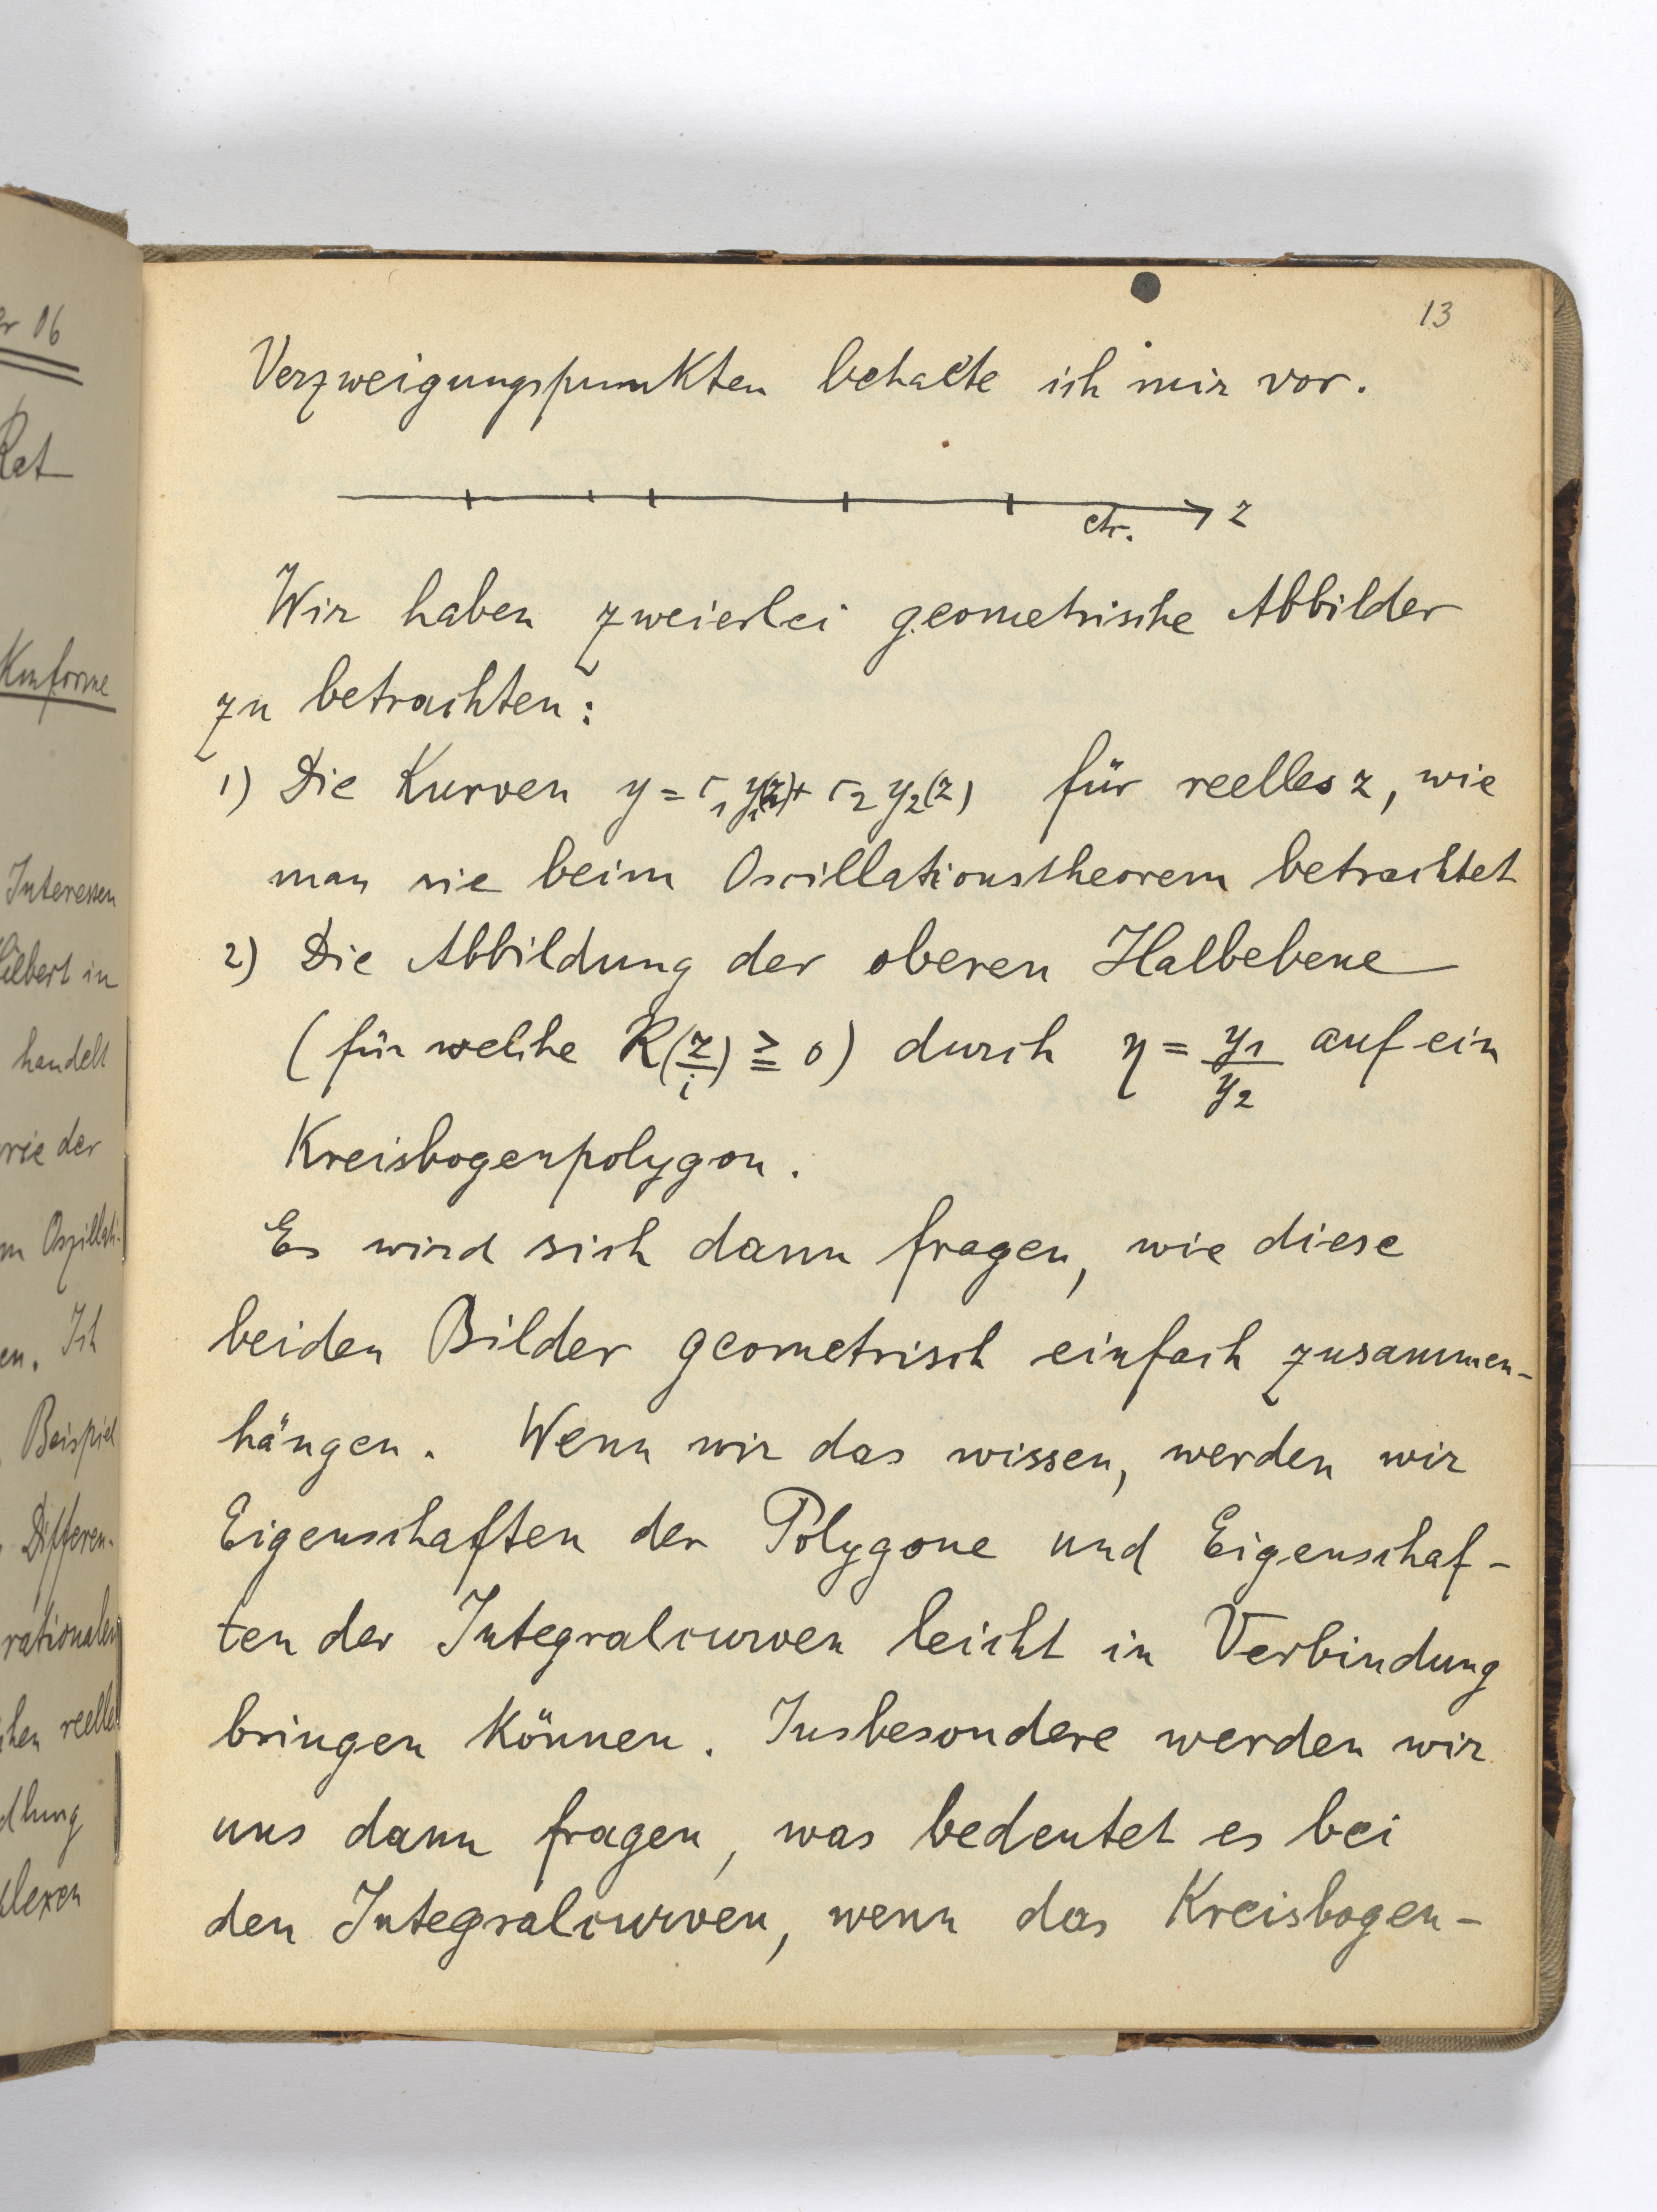 er 06
Rat
Konforme
Interessen
Hilbert in
handelt
orie der
m Oszillati-
en. Ich
Beispiel
Differen-
rationalen
chen reellen
dlung
plexen
13
Verzweigungspunkten behalte ich mir vor.
etc. z
Wir haben zweierlei geometrische Abbilder
zu betrachten:
1) Die Kurven y = c₁y₁(z) + c₂y₂(z) für reelles z, wie
man sie beim Oscillationstheorem betrachtet
2) Die Abbildung der oberen Halbebene
(für welche R(z/i) ≧ 0) durch η = y₁/y₂ auf ein
Kreisbogenpolygon.
Es wird sich dann fragen, wie diese
beiden Bilder geometrisch einfach zusammen-
hängen. Wenn wir das wissen, werden wir
Eigenschaften der Polygone und Eigenschaf-
ten der Integralcurven leicht in Verbindung
bringen können. Insbesondere werden wir
uns dann fragen, was bedeutet es bei
den Integralcurven, wenn das Kreisbogen-